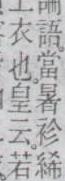 論語。當暑袗絺
衣也。皇云。若